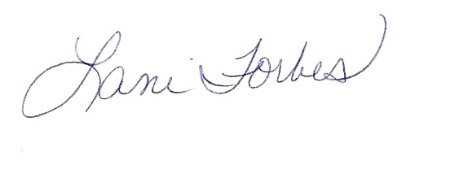 Lani Forbes